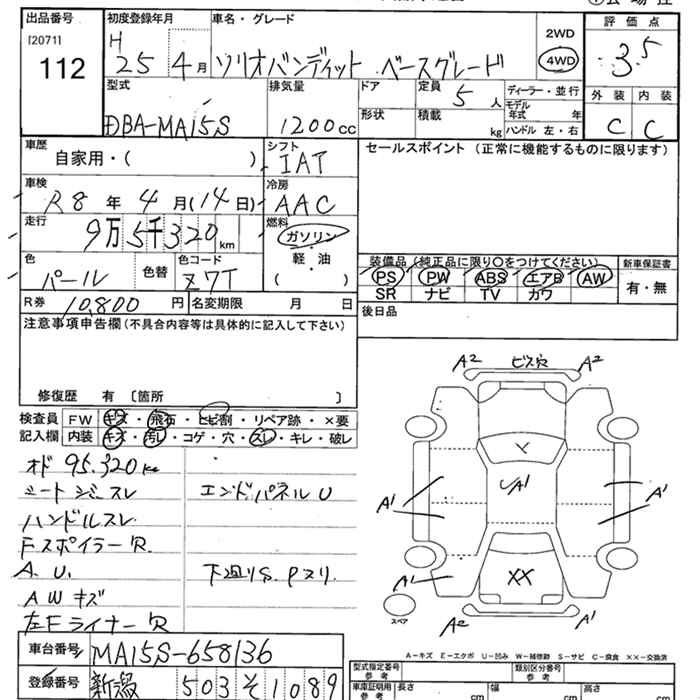 出品番号
[2071]
112
初度登録年月
H
25 4月
車名・グレード
ソリオバンディット ベースグレード
2WD
4WD
評価点
3.5
外装 内装
C C
型式
DBA-MA15S
排気量
1200cc
ドア
形状
定員
5人
積載
kg
ディーラー・並行
モデル年式 年
ハンドル 左・右
車歴
自家用・( )
シフト
IAT
セールスポイント (正常に機能するものに限ります)
車検
R8年 4月(14日)
冷房
AAC
走行
9万5千320km
燃料
ガソリン
・
軽・油
( )
色
パール
色替
色コード
Z7T
装備品(純正品に限り〇をつけてください)
PS PW ABS エアB AW
SR ナビ TV カワ
新車保証書
有・無
R券 10,800円
名変期限 月 日
後日品
注意事項申告欄(不具合内容等は具体的に記入して下さい)
修復歴 有 〔箇所 〕
検査員記入欄
FW キズ・飛石・ヒビ割・リペア跡・×要
内装 キズ・汚れ・コゲ・穴・スレ・キレ・破レ
オド 95,320km
シートジミスレ
エンドパネルU
ハンドルスレ
Fスポイラー
A.U.
下廻りS.Pヌリ.
AWキズ
左Fライナー
A2 ビス穴 A2
A1
A1
A1
A1
XX
A2
A1
スペア
A-キズ E-エクボ U-凹み W-補修跡 S-サビ C-腐食 XX-交換済
車台番号
MA15S-658136
登録番号
新潟 503 そ 1089
型式指定番号
参考
類別区分番号
参考
車庫証明用
参考
長さ cm
幅 cm
高さ cm